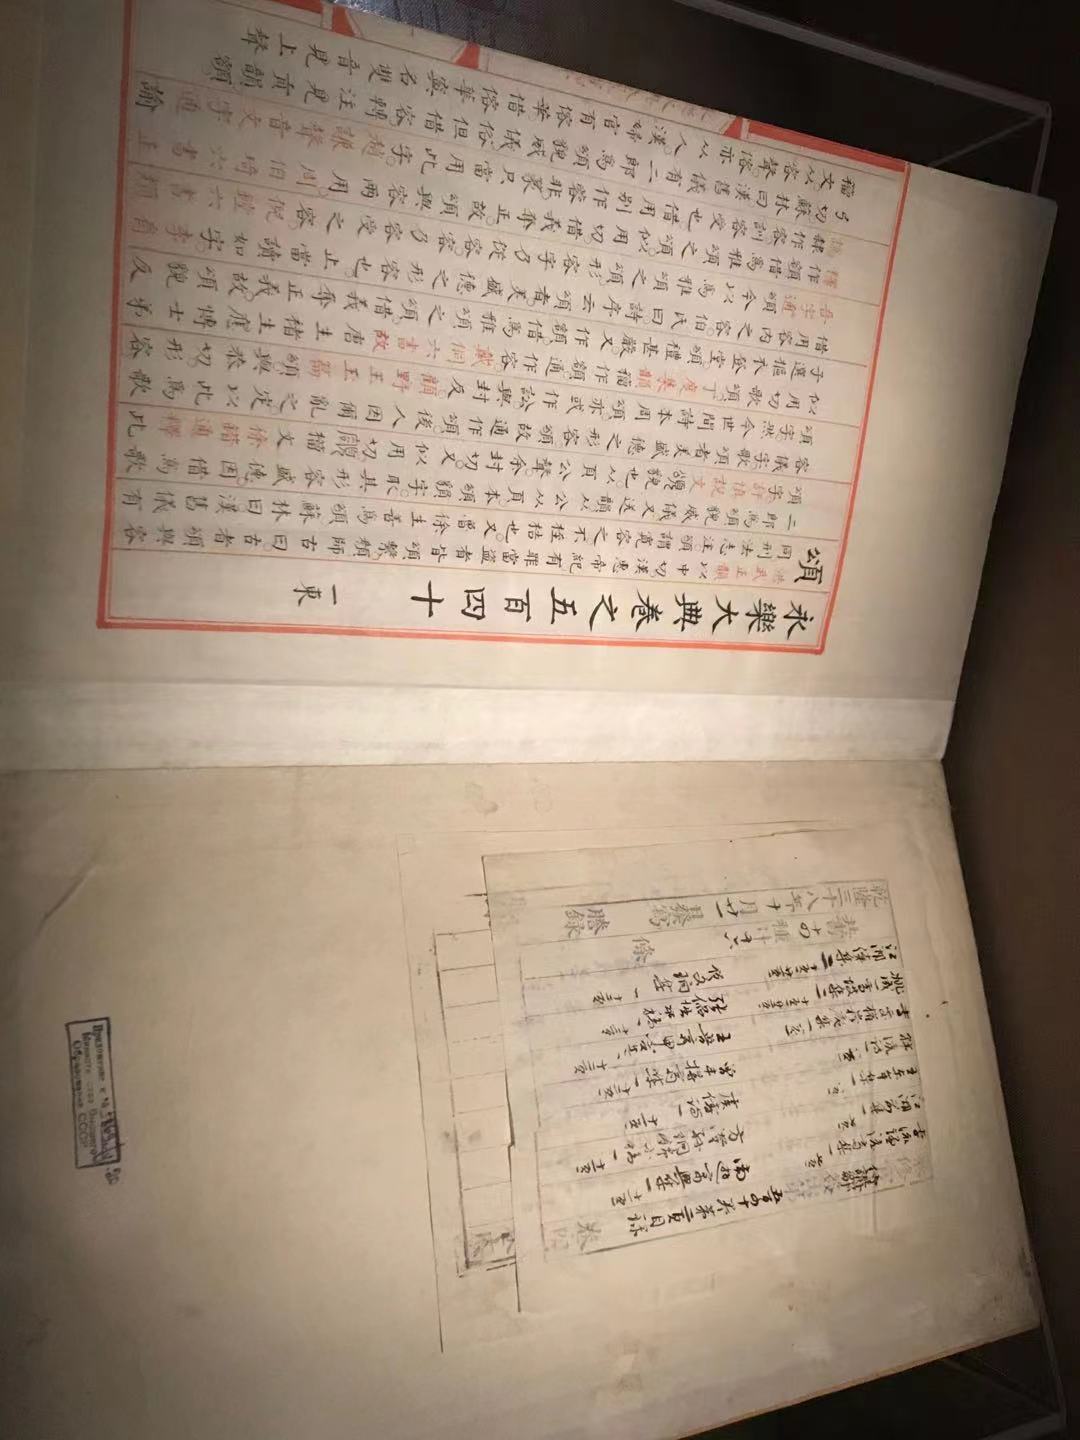 永樂大典卷之五百四十 一東
頌洪武正韻以中切漢惠帝紀有罪當盜者皆頌繫顏師古曰古者頌與容
同刑法志注頌謂寬容之不桎梏也又魯徐生善為頌蘇林曰漢舊儀有
二郎為頌貌威儀又送韻从公从頁本頌額字取其形容盛德因借為歌
頌字許慎說文頌貌也从頁公聲余封切又似用切額籀文徐鍇通釋此
容儀字歌頌者美盛德之形容頌故通作頌後人因爾亂之定以此為歌
頌字然今世間詩本周頌亦或作訟與封反顧野王玉篇頌與恭切形容
似用切歌頌丁度集韻籀作額通作容戴侗六書故唐生褚生應博士弟
子選摳衣登堂頌禮甚嚴又作額借為雅頌之頌借義奪正義故頌貌反
借用容內之容伯氏曰詩序云頌者美盛德之形容也止當讀如字李肩
吾字通頌今以為雅頌之頌形容字乃從容容乃容受之容倪鏜六書類
釋作額借為雅頌之頌似用切借義奪正故頌與容兩用周伯琦六書正
譌隸作容訓容受也借用別作蓉非篆只當用此字趙謙聲音文字通諭
弓切蘇林曰漢舊儀有二郎為頌貌威儀俗但借容轉注見貢韻額
籀文从容聲俗亦从人漢婦官有傛華借傛華寘名雙音見上聲
纂修官 侍講鄒 簽出第五百四十卷第二頁目錄 卷四
李流謙澹齋集一 南遊寄興集一
江湖前集一 方澄孫絅錦小稿一
王東牟集一 虞儔詩一
韓流詩一 曾丰撙齋集一
李雲楫 王晉
姚成一雪坡集二 張侃拙
江湖續集二
共十四種計十六條
乾隆三十八年十月廿一日發寫 謄錄
Приложение к №
Министерства Высшего
Образования СССР